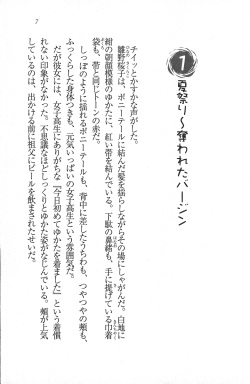 7
1 夏祭り〜奪われたバージン
チイッとかすかな声がした。
雛野桜子は、ポニーテールに結んだ髪を揺らしながらその場にしゃがんだ。白地に
紺の朝顔模様のゆかたに、紅い帯を結んでいる。下駄の鼻緒も、手に提げている巾着
袋も、帯と同じトーンの赤だ。
しっぽのように揺れるポニーテールも、背中に差したうちわも、つやつやの頬も、
ふっくらした身体つきも、元気いっぱいの女子高生という雰囲気だ。
だが彼女には、女子高生にありがちな「今日初めてゆかたを着ました」という着慣
れない印象がなかった。不思議なほどしっくりとゆかた姿がなじんでいる。頬が上気
しているのは、出かける前に祖父にビールを飲まされたせいだ。